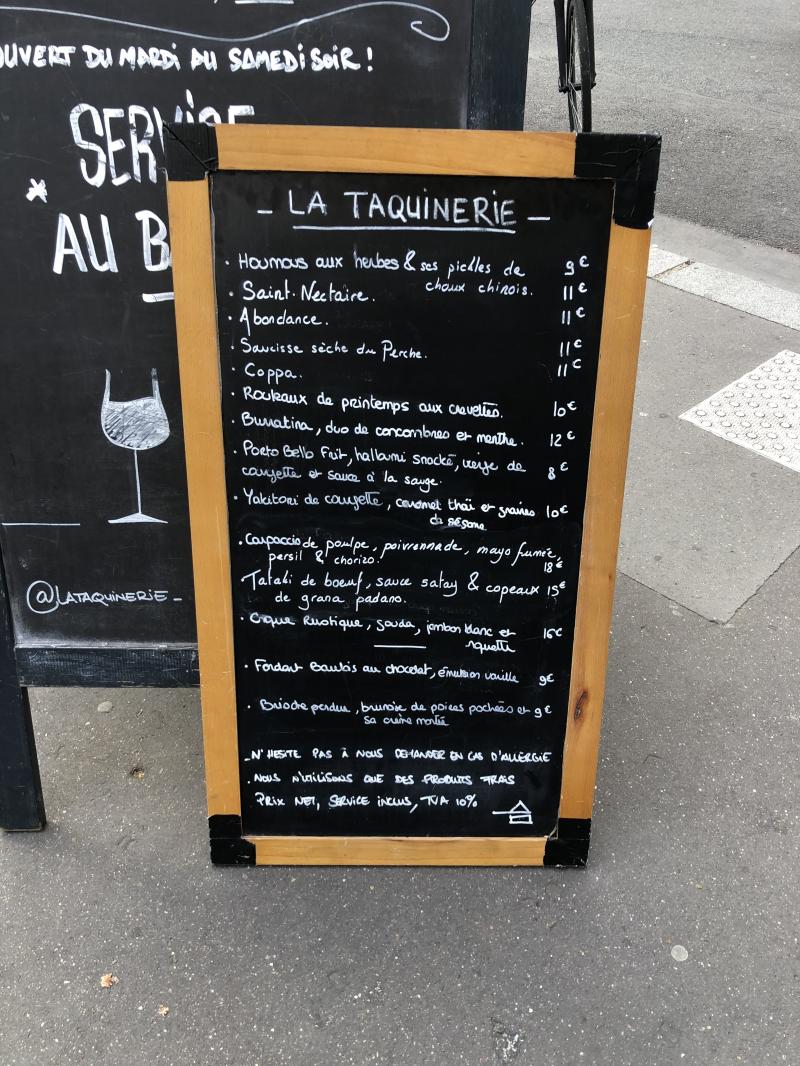 OUVERT DU MARDI AU SAMEDI SOIR !
SERVICE
AU B
@LATAQUINERIE_
- LA TAQUINERIE -
· Houmous aux herbes & ses pickles de 9€
choux chinois.
· Saint-Nectaire. 11€
· Abondance. 11€
· Saucisse sèche du Perche. 11€
· Coppa. 11€
· Rouleaux de printemps aux crevettes. 10€
· Burratina, duo de concombres et menthe. 12€
· Porto Bello Frit, hallumi snacké, de 8€
courgette et sauce à la sauge.
· Yakitori de courgette, caramel thaï et graines 10€
de sésame
· Carpaccio de poulpe, poivronnade, mayo fumée,
persil & chorizo. 18€
· Tataki de boeuf, sauce satay & copeaux 15€
de grana padano.
· Croque Rustique, gouda, jambon blanc et 16€
roquette
· Fondant Baulois au chocolat, émulsion vanille 9€
· Brioche perdue, brunoise de poires pochées et 9€
sa crème montée
_N'HESITE PAS À NOUS DEMANDER EN CAS D'ALLERGIE
· NOUS N'UTILISONS QUE DES PRODUITS FRAIS
PRIX NET, SERVICE INCLUS, TVA 10%